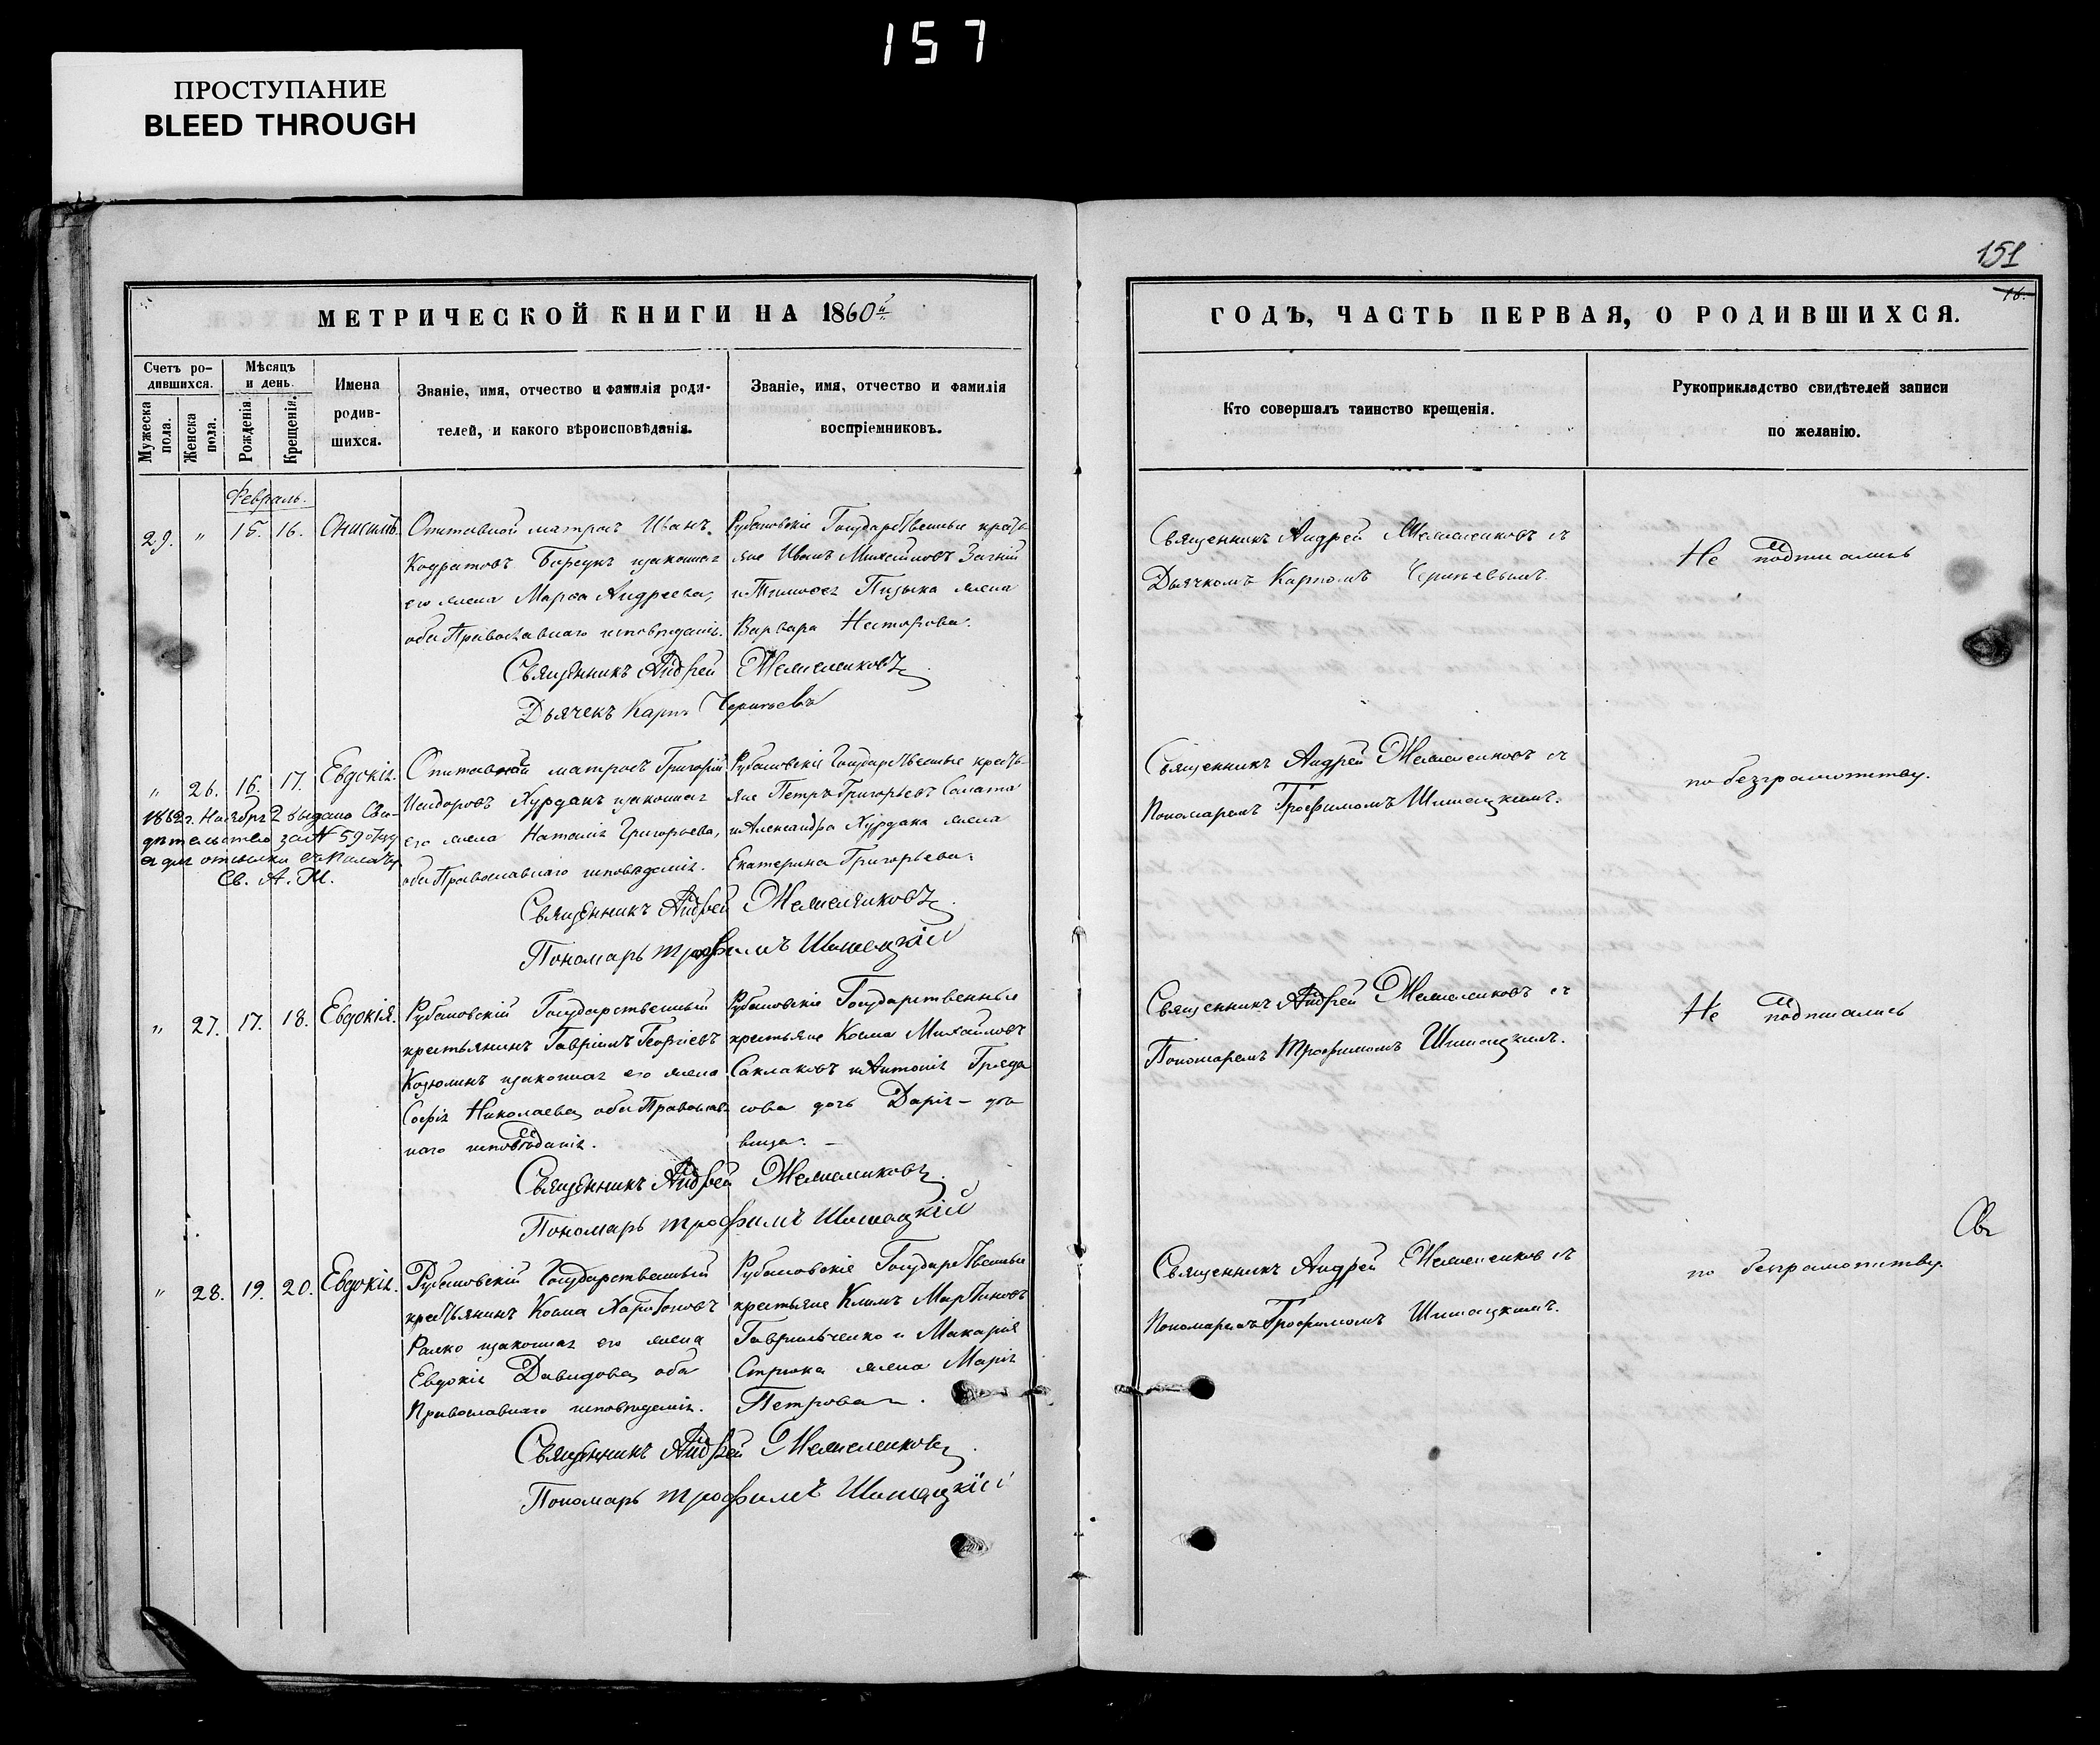 157
ПРОСТУПАНИЕ
BLEED THROUGH
151
16.
МЕТРИЧЕСКОЙ КНИГИ НА 1860й
ГОДЪ, ЧАСТЬ ПЕРВАЯ, О РОДИВШИХСЯ.
Счетъ ро-
дившихся.
Мужеска пола.
Женска пола.
Мѣсяцъ
и день.
Рожденія.
Крещенія.
Имена
родив-
шихся.
Званіе, имя, отчество и фамилія роди-
телей, и какого вѣроисповѣданія.
Званіе, имя, отчество и фамилія
воспріемниковъ.
Кто совершалъ таинство крещенія.
Рукоприкладство свидѣтелей записи
по желанію.
Февраль.
29. " 15. 16. Онисимъ.
Отставной матросъ Иванъ
Кодратовъ законная
его жена Марѳа Андреева,
оба Православнаго исповѣданія.
Рубановскіе Государственные крестья
яне Иванъ Михаиловъ
и Тимоѳея жена
Варвара Несторова.
Священникъ Андрей
Дьячекъ Карпъ
Священникъ Андрей съ
Дьячкомъ Карпомъ
Не подписались
" 26. 16. 17. Евдокія.
1862 г. Ноября 2 выдано Сви-
дѣтельство за № 59 отцу
ея для отсылки
Св. А. Ж.
Отставной матросъ Григорій
Исидоровъ Курданъ законная
его жена Наталія Григорьева,
оба Православнаго исповѣданія.
Рубановскіе Государственные кресть-
яне Петръ Григорьевъ Салата
и Александра Курдана жена
Екатерина Григорьева.
Священникъ Андрей
Пономарь Трофимъ Шишацкій
Священникъ Андрей съ
Пономаремъ Трофимомъ Шишацкимъ.
по безграмотству.
" 27. 17. 18. Евдокія.
Рубановскій Государственный
крестьянинъ Гавріилъ Георгіевъ
Козюминъ законная его жена
Софія Николаева, оба Православ-
наго исповѣданія.
Рубановскіе Государственные
крестьяне Косма Михайловъ
Саклаковъ и Антонія
сова дочь Дарія – дѣ
вица. –
Священникъ Андрей
Пономарь Трофимъ Шишацкій
Священникъ Андрей съ
Пономаремъ Трофимомъ Шишацкимъ.
Не подписались
" 28. 19. 20. Евдокія.
Рубановскій Государственный
крестьянинъ Косма Харитоновъ
законная его жена
Евдокія Давидова, оба
Православнаго исповѣданія.
Рубановскіе Государственные
крестьяне Климъ Мартиновъ
Гаврильченко и Макарія
жена Марія
Петрова.
Священникъ Андрей
Пономарь Трофимъ Шишацкій
Священникъ Андрей съ
Пономаремъ Трофимомъ Шишацкимъ.
по безграмотству.
Св.